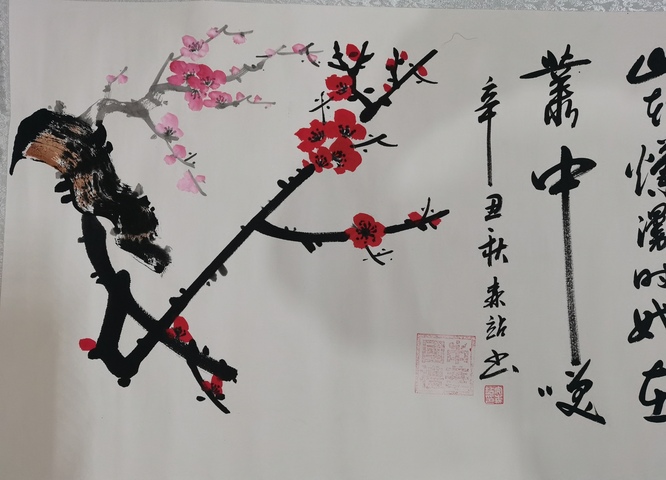 山花爛漫时她在
叢中咲
辛丑秋森站书